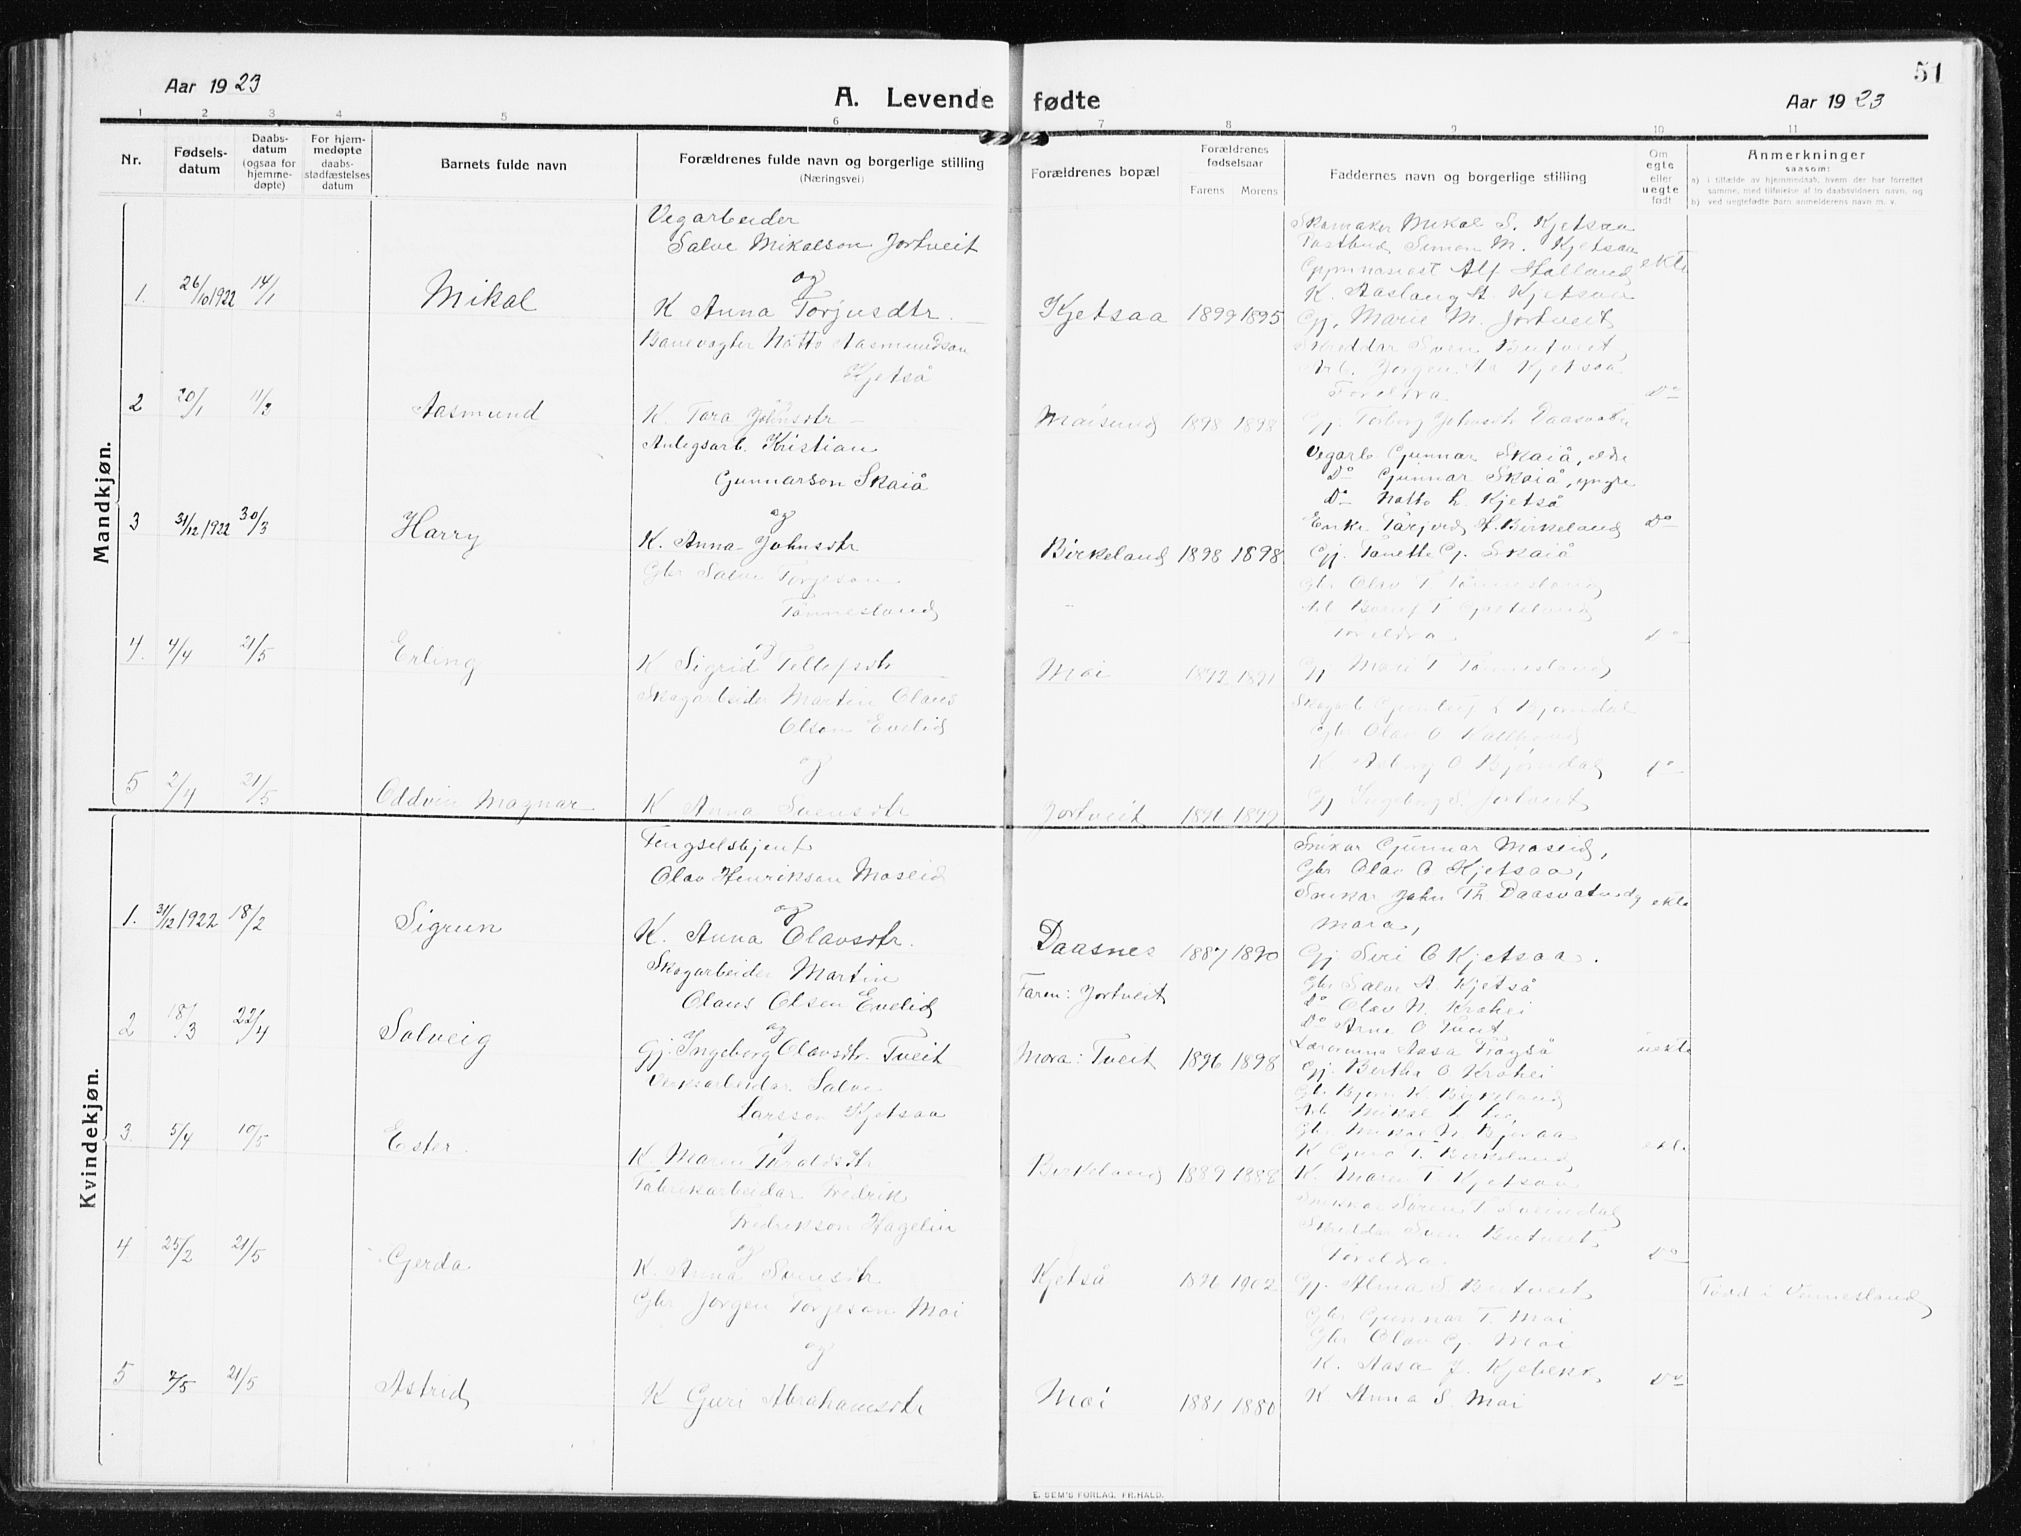 Aar 1923
A. Levende fødte
Aar 1923
51
1 2 3 4 5 6 7 8 9 10 11
Nr.
Fødsels-
datum
Daabs-
datum
(ogsaa for
hjemme-
døpte)
For hjem-
medøpte
daabs-
stadfæstelses
datum
Barnets fulde navn
Forældrenes fulde navn og borgerlige stilling
(Næringsvei)
Forældrenes bopæl
Forældrenes
fødselsaar
Farens Morens
Faddernes navn og borgerlige stilling
Om
egte
eller
uegte
født
Anmerkninger
saasom:
a) i tilfælde av hjemmedaab, hvem der har forrettet
samme, med tilføielse af to daabsvidners navn, og
b) ved uegtefødte barn anmelderens navn m. v.
Mandkjøn.
1. 26/10 1922 14/1 Mikal
Vegarbeider
Salve Mikalson Jortveit
og
K Anna Torjusdtr.
Kjetsaa 1899 1895
Skomaker Mikal S. Kjetsaa
Postbud Simon M. Kjetsaa
Gymnasiast Alf Halland
K. Aaslaug A. Kjetsaa
Gj. Marie M. Jortveit
ekte
2 20/1 11/3 Aasmund
Banevogter Notto Aasmundson
Kjetså
og
K. Tora Johnsdtr
Moisund 1898 1898
Skreddar Sven Bentveit,
Arb. Jørgen Aa Kjetsaa
Foreldra
Gj. Torborg Johnsdtr Daasvatn
Do
3 31/12 1922 30/3 Harry
Anlegsarb. Kristian
Gunnarson Skaiå
og
K. Anna Johnsdtr
Birkeland 1898 1898
Vegarb. Gunnar Skaiå, eldre
Do Gunnar Skaiå, yngre
Do Notto L. Kjetså
Enke Tarjerd H. Birkeland
Gj. Tanette G. Skaiå
Do
4. 4/4 21/5 Erling
Gbr Salve Torjeson
Tønnesland
og
K Sigrid Tellefsdtr
Moi 1892 1891
Gbr Olav T Tønnesland
Arb T
Foreldra
Gj Mari T Tønnesland
Do
5 2/4 21/5 Oddvin Magnar
Skogarbeider Martin Olaus
Olson Evelid
og
K Anna Svensdtr
Jortveit 1896 1899
Skogarb L Bjørndal
Gbr Olav O
K Asborg O Bjørndal
Gj Ingeborg S. Jortveit
Do
Kvindekjøn.
1. 31/12 1922 18/2 Sigrun
Fengselsbjent
Olav Henrikson Moseid
og
K. Anna Olavsdtr.
Daasnes 1887 1890
Snikar Gunnar Moseid,
Gbr Olav O Kjetsaa,
Snikar John Th. Daasvatn og
Mora,
Gj Siri O Kjetsaa.
ekte
2 18/3 22/4 Solveig
Skogarbeider Martin
Olaus Olsen Evelid
og
Gj. Ingeborg Olavsdtr. Tveit
Faren: Jortveit
Mora: Tveit 1896 1898
Gbr Salve A Kjetså
Do Olav N. Krohei
Do Arne O Tveit
Lærerinna Aasa Frøyså
Gj. Bertha O Krohei
uekte
3. 5/4 10/5 Ester
Verksarbeidar Salve
Larsson Kjetsaa
og
K Maren Taraldsdtr
Birkeland 1889 1888
Gb. Bjorn K. Birkeland
Arb. Mikal
Gbr. Mikal N. Bjoraa
K Guro T. Birkeland
K. Maren T Kjetsaa
ekte
4 25/2 21/5 Gerda
Fabrikarbeidar Fredrik
Fredrikson Hagelin
og
K. Anna Svensdtr
Kjetså 1896 1902
Søren T
Skreddar Sven Bentveit,
Foreldra.
Gj. Alma S. Bentveit
Do
Fødd i Vennesland
5 7/5 21/5 Astrid
Gbr Jørgen Torjeson Moi
og
K Guri Abrahamsdtr
Moi 1881 1880
Gbr Gunnar T. Moi
Gbr Olav G. Moi
K. Aasa J. Kjebekk
K Anna S. Moi
Do
E. SEM'S FORLAG, FR.HALD.